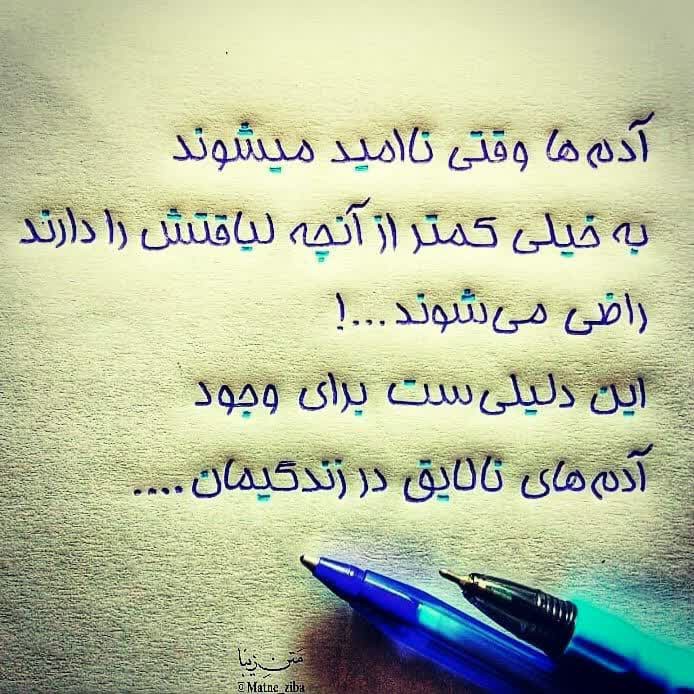 آدم‌ها وقتی ناامید میشوند
به خیلی کمتر از آنچه لیاقتش را دارند
راضی می‌شوند...!
این دلیلی‌ست برای وجود
آدم‌های نالایق در زندگیمان....
متن زیبا
©Matne_ziba